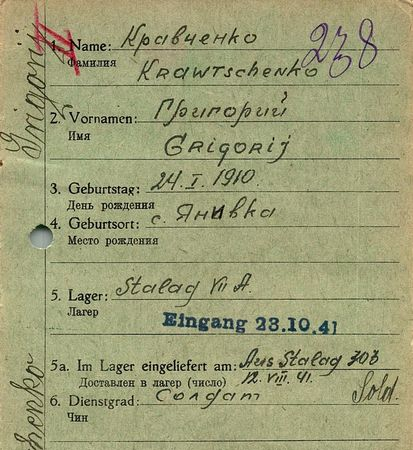 1. Name: Кравченко
Фамилия
KRAWTSCHENKO
238
2. Vornamen: Григорий
Имя
GRIGORIJ
3. Geburtstag: 24. I. 1910.
День рождения
4. Geburtsort: с. Янивка
Место рождения
5. Lager: Stalag VII A.
Лагерь
Eingang 23.10.41
5a. Im Lager eingeliefert am: Aus Stalag
Доставлен в лагерь (число) 12. VIII. 41.
6. Dienstgrad: Солдат Sold.
Чин
Grigorij